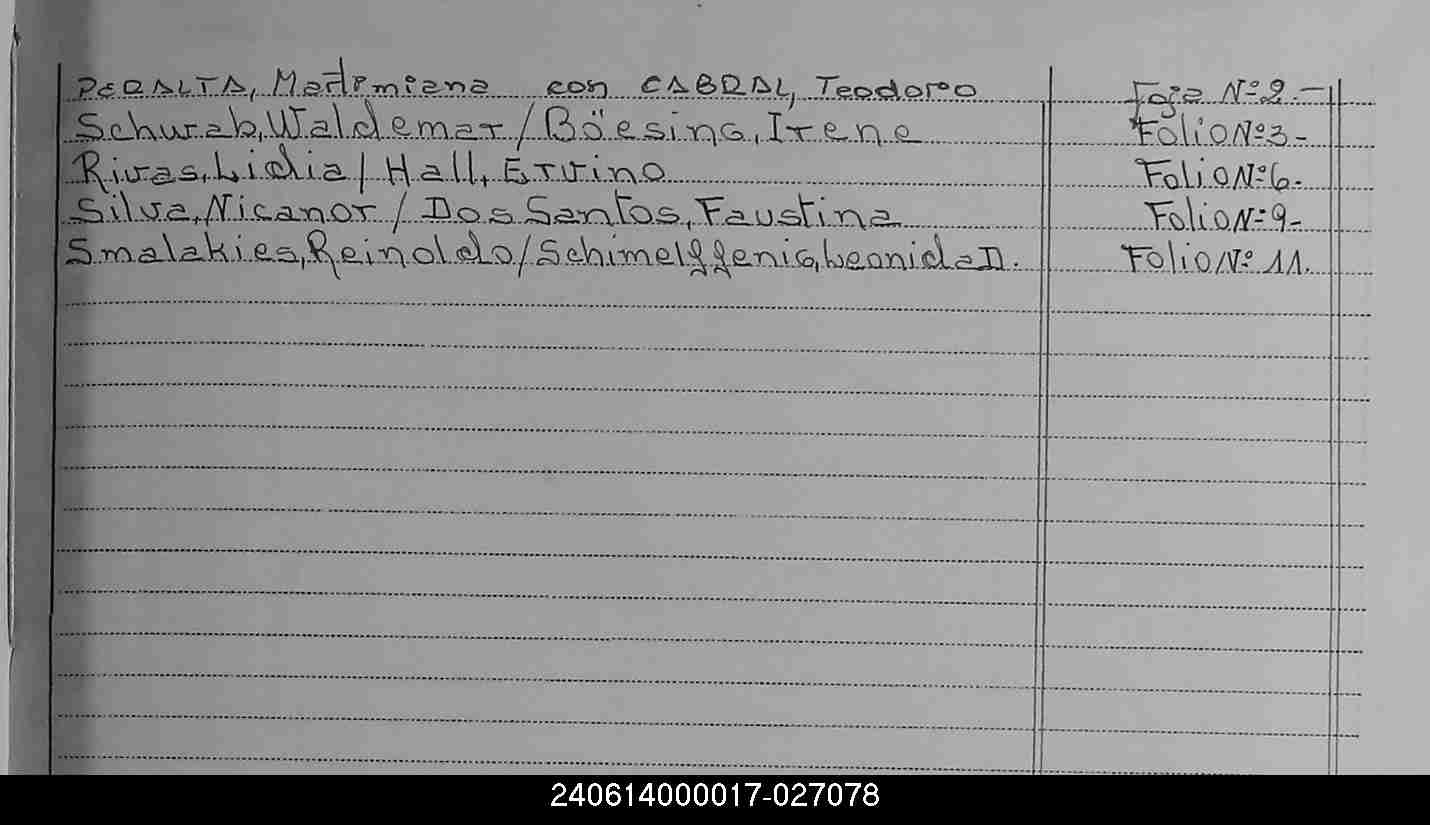 PERALTA, con CABRAL, Teodoro Foja Nº 2.-
Schwab, Waldemar / Böesing, Irene Folio Nº 3-
Rivas, Lidia / Hall, Ervino Folio Nº 6.
Silva, Nicanor / Dos Santos, Faustina Folio Nº 9-
Smalakies, Reinoldo / Schimelffenig, Leonida D. Folio Nº 11.
240614000017-027078